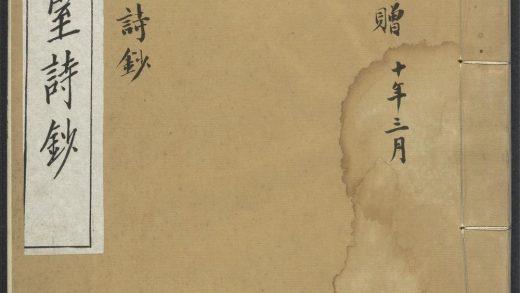 贈 十年三月
詩鈔
室詩鈔